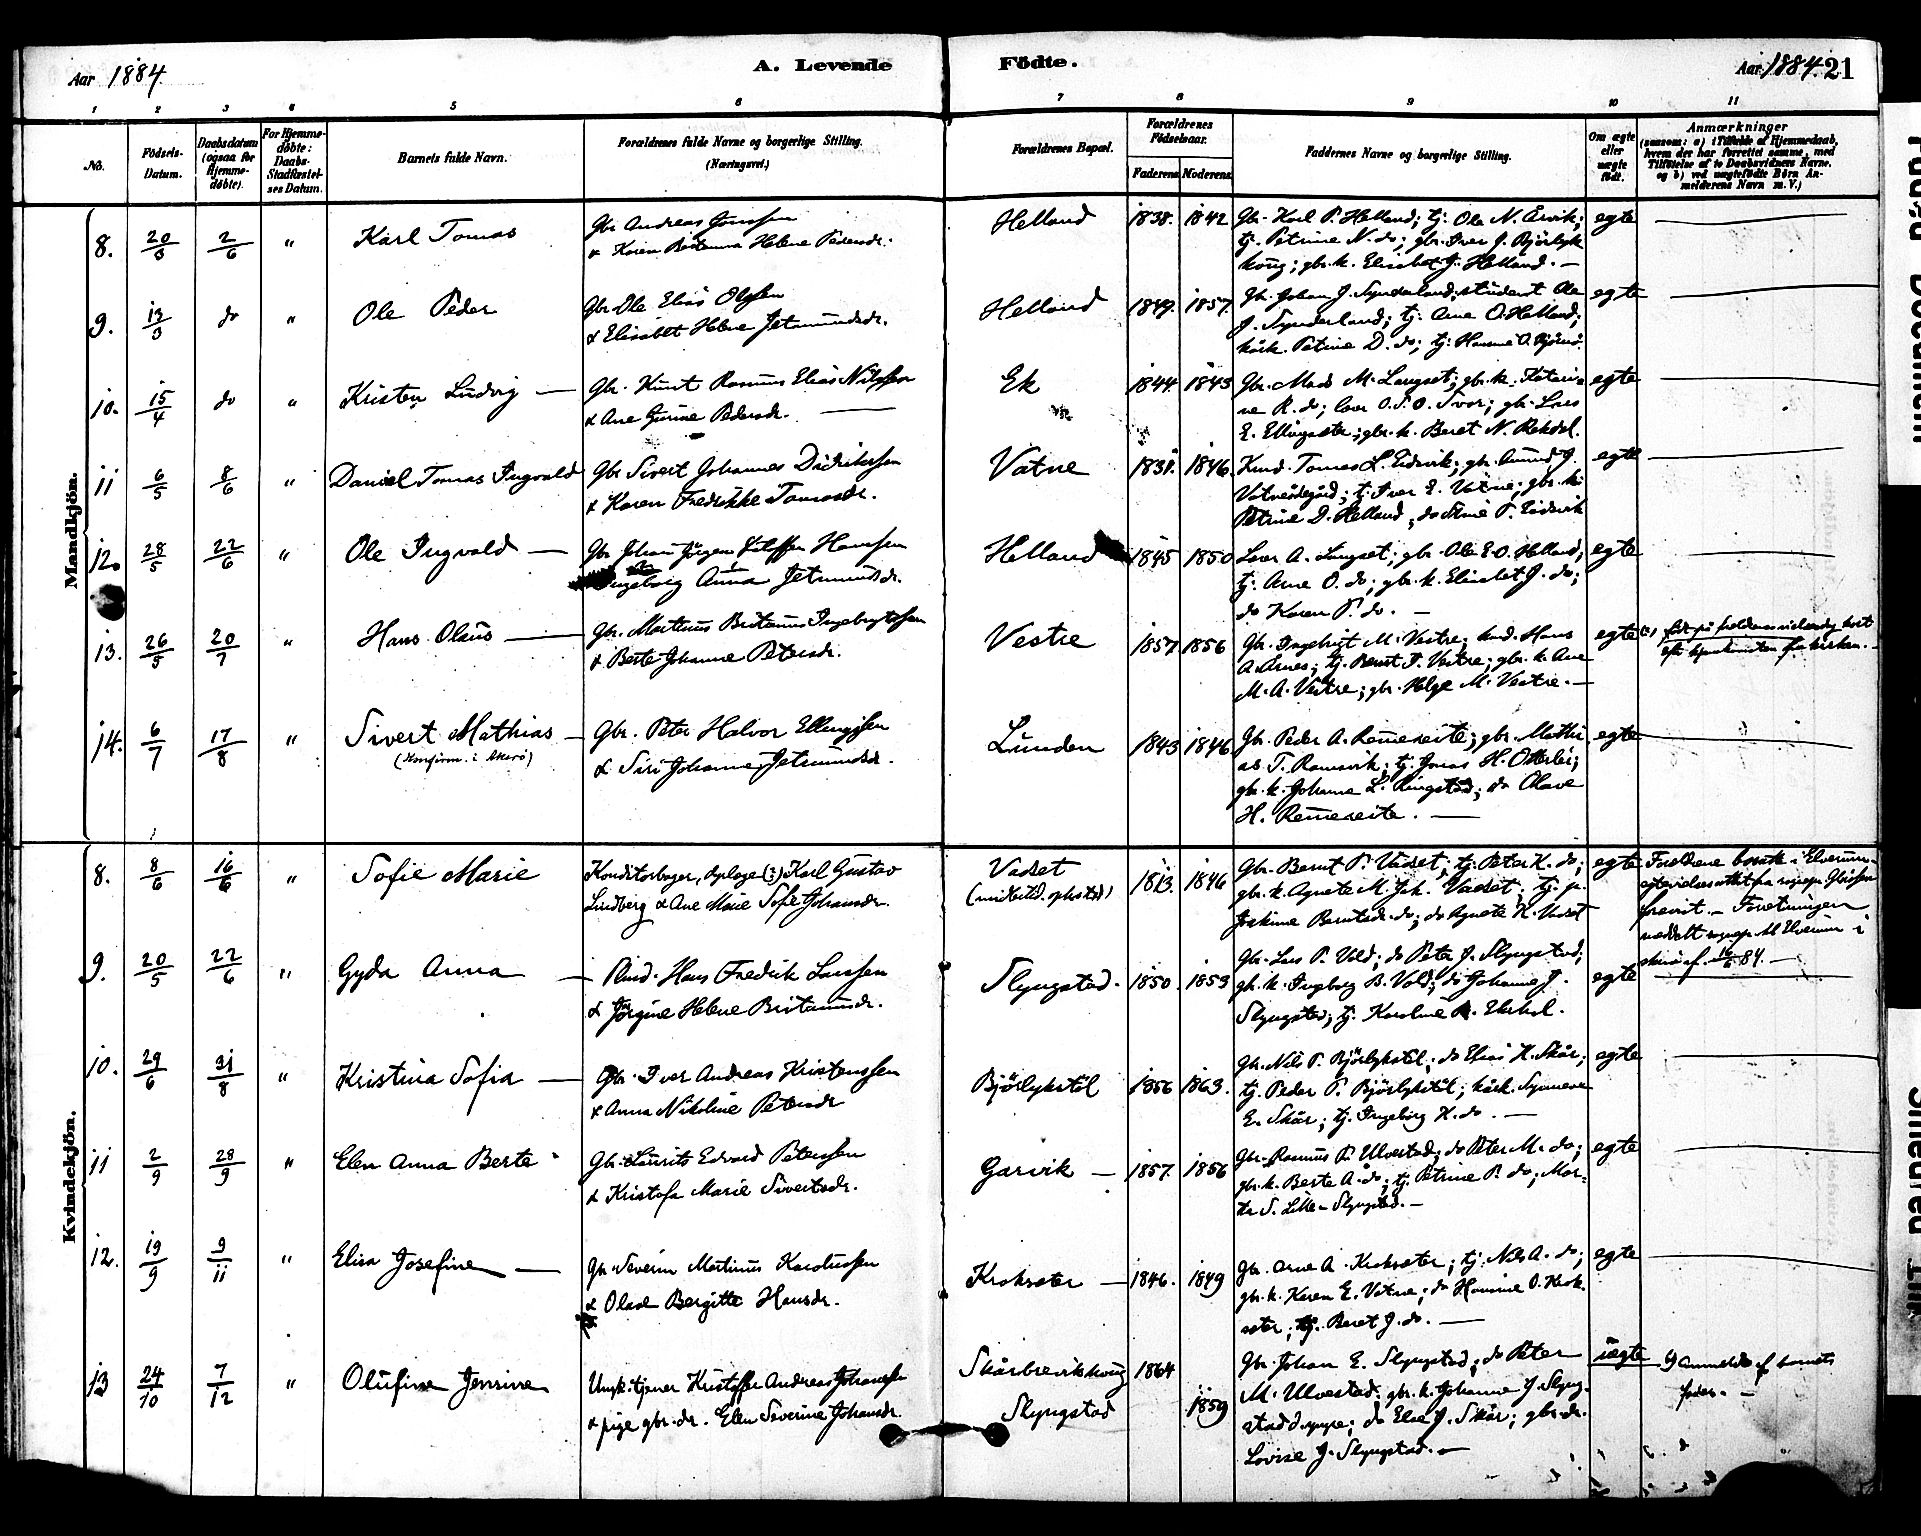 Aar 1884.
A. Levende
Födte.
Aar 1884. 21
1 2 3 4 5 6 7 8 9 10 11
No.
Födsels-
Datum.
Daabsdatum
(ogsaa for
Hjemme-
döbte).
For Hjemme-
döbte:
Daabs-
Stadfæstel-
ses Datum.
Barnets fulde Navn.
Forældrenes fulde Navne og borgerlige Stilling.
(Næringsvei.)
Forældrenes Bopæl.
Forældrenes
Födselsaar.
Faderens Moderens
Faddernes Navne og borgerlige Stilling.
Om ægte
eller
uægte
födt.
Anmærkninger
(saasom: a) i Tilfælde af Hjemmedaab,
hvem der har forrettet samme, med
Tilföielse af to Daabsvidners Navne.
og b) ved uægtefödte Börn An-
melderens Navn m. V.)
Mandkjön.
8. 20/5 2/6 " Karl Tomas
Gbr. Andreas Jonssen
& Karen Bertenna Helene Pedersdr.
Helland 1838. 1842
Gbr. Karl P. Helland; tj. Ole N. Ørvik;
tj. Petrine N. do; gbr. Iver J. Bjørlyk
houg; gbr. k. Elisabet J. Helland. —
egte
9. 13/3 do " Ole Peder
Gbr. Ole Elias Olssen
& Elisabet Helene Jetmundsdr.
Helland 1847. 1857.
Gbr. Johan J. Synderland; student Ole
J. Synderland; tj. Arne O. Helland;
kårk. Petrine D. do; tj. Hanna O.
egte
10. 15/4 do " Kristen Ludvig —
Gbr. Knut Rasmus Elias Nilssen
& Ane Gurine Pedersdr. —
Ek 1844. 1843
Gbr. Mads M. Langset; gbr. k. Katari-
ne R. do; lærer O. S. O. Svor; gbr. Lars
E. Ellingsæter; gbr. k. Beret N. Rekdal.
egte
11 6/5 8/6 " Daniel Tomas Ingvald
Gbr. Sivert Johannes Didriksen
& Karen Fredrikke Tomasdr.
Vatne 1831. 1846.
Knd. Tomas L. Eidsvik; gbr. Amund J.
Vatneødegård; tj. Iver E. Vatne; gbr. k.
Petrine D. Helland; do Stine T. Eidsvik
egte
12. 28/5 22/6 " Ole Ingvald —
Gbr. Johan Jørgen Hanssen
& Ingeborg Anna Jetmundsdr.
Helland 1845 1850
Lærer A. Langset; gbr. Ole E. O. Helland;
tj. Arne O. do; gbr. k. Elisabet J. do;
do Karen P. do. —
egte
13. 26/5 20/7 " Hans Olaus —
Gbr. Martinus Bertinus Ingebrigtssen
& Berte Johanne Petersdr.
Vestre 1857 1856
Gbr. Ingebrigt M. Vestre; knd. Hans
A. Årnes; tj. Bernt P. Vestre; gbr. k. Ane
M. A. Vestre; gbr. Helge M. Vestre. —
egte
14. 6/7 17/8 " Sivert Mathias —
(Konfirm. i Akerø)
Gbr. Peter Halvor Ellingsen
& Siri Johanne Jetmundsdr.
Lunden 1843 1846
Gbr. Peder A. Remereite; gbr. Mathi-
as T. Ramsvik; tj. Jonas H. Otterlei;
gbr. k. Johanne L. Ringstad; do Olave
H. Remereite. —
egte
Kvindekjön.
8. 8/6 16/6 " Sofie Marie
Konditorbager, Karl Gustav
Lindberg & Ane Marie Sofie Johansdr.
Vadset
1813. 1846
Gbr. Bernt P. Vadset; tj. Peter K. do;
gbr. k. Agnete M. Joh. Vadset; tj. p.
Joakime Berntsdr. do; do Agnete K. Vadset
egte
Forældrene bosatte i Elverum
9. 20/5 22/6 " Gyda Anna —
Knd. Hans Fredrik Larssen
& Jørgine Helene Bertinusdr.
Slyngstad. 1850. 1853
Gbr. Lars P. Vold; do Peter J. Slyngstad;
gbr. k. Ingeborg B. Vold; do Johanne J.
Slyngstad; tj. Karoline
egte
10. 29/6 31/8 " Kristina Sofia —
Gbr. Iver Andreas Kristenssen
& Anna Nikoline Petersdr
Bjørlykstøl 1856 1863.
Gbr. Nils P. Bjørlykstøl; do Elias K. Skår;
tj. Peder P. Bjørlykstøl; kårk. Synneve
E. Skår; tj. Ingeborg K. do. —
egte
11 2/9 28/9 " Elen Anna Berte
Gbr. Laurits Edvard Petersen
& Kristofa Marie Sivertsdr.
Garvik — 1857. 1856
Gbr. Rasmus P. Ulvestad; do Peter M. do;
gbr. k. Berte A. do; tj. Petrine P. do; Mar-
te S. Lille-Slyngstad. —
egte
12. 19/9 9/11 " Elisa Josefine —
Gbr. Severin Martinus Karolussen
& Olave Bergitte Hansdr.
Kroksæter — 1846. 1849
Gbr. Arne A. Kroksæter; tj. Nils A. do;
gbr. k. Karen E. Vatne; do Hansine O. Krok-
sæter; tj. Beret J. do. —
egte
13 24/10 7/12 " Olufine Jensine
Ungk. tjener Kristoffer Andreas Johanssen
& pige gbr. dr. Elen Severine Johansdr.
Skårbrevikhoug 1864
Slyngstad 1859
Gbr. Johan E. Slyngstad; do Peter
M. Ulvestad; gbr. k. Johanne J. Slyng-
stad; do Else J. Skår; gbr. dr.
Lovise J. Slyngstad. —
uegte
Anmeldt af barnets
fader. —